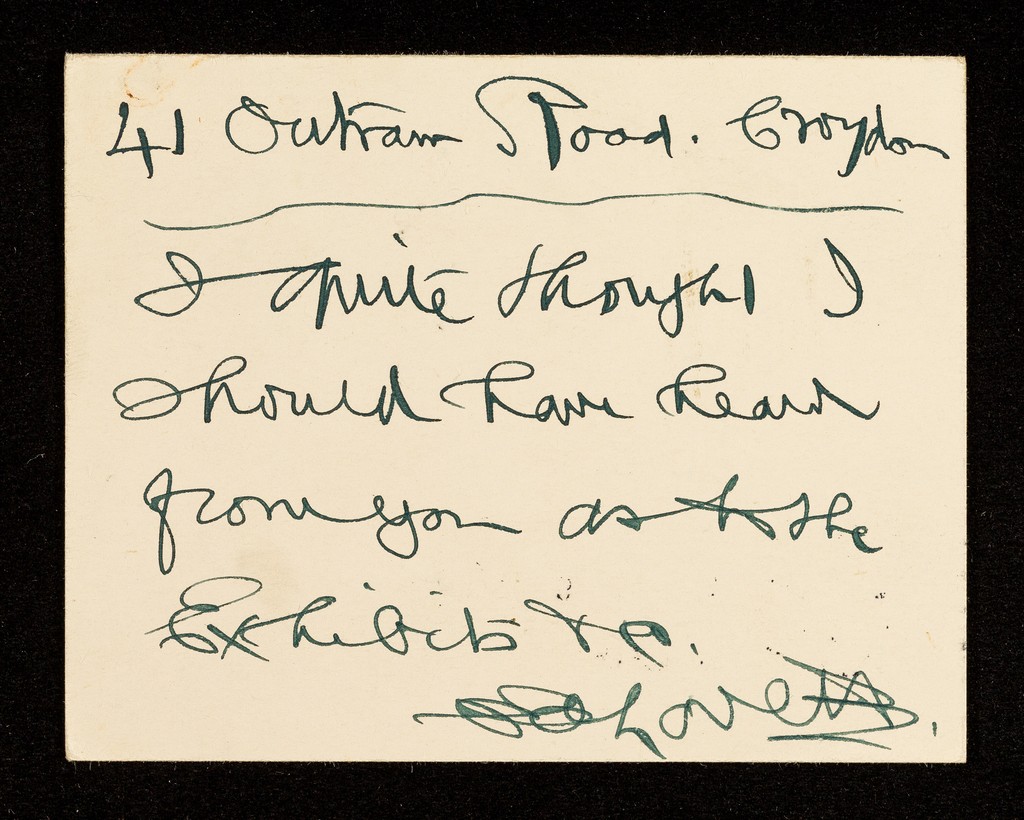 41 Outram Road. Croydon
I quite thought I
should have heard
from you as to the
Exhibits &c.
Ed Lovett.